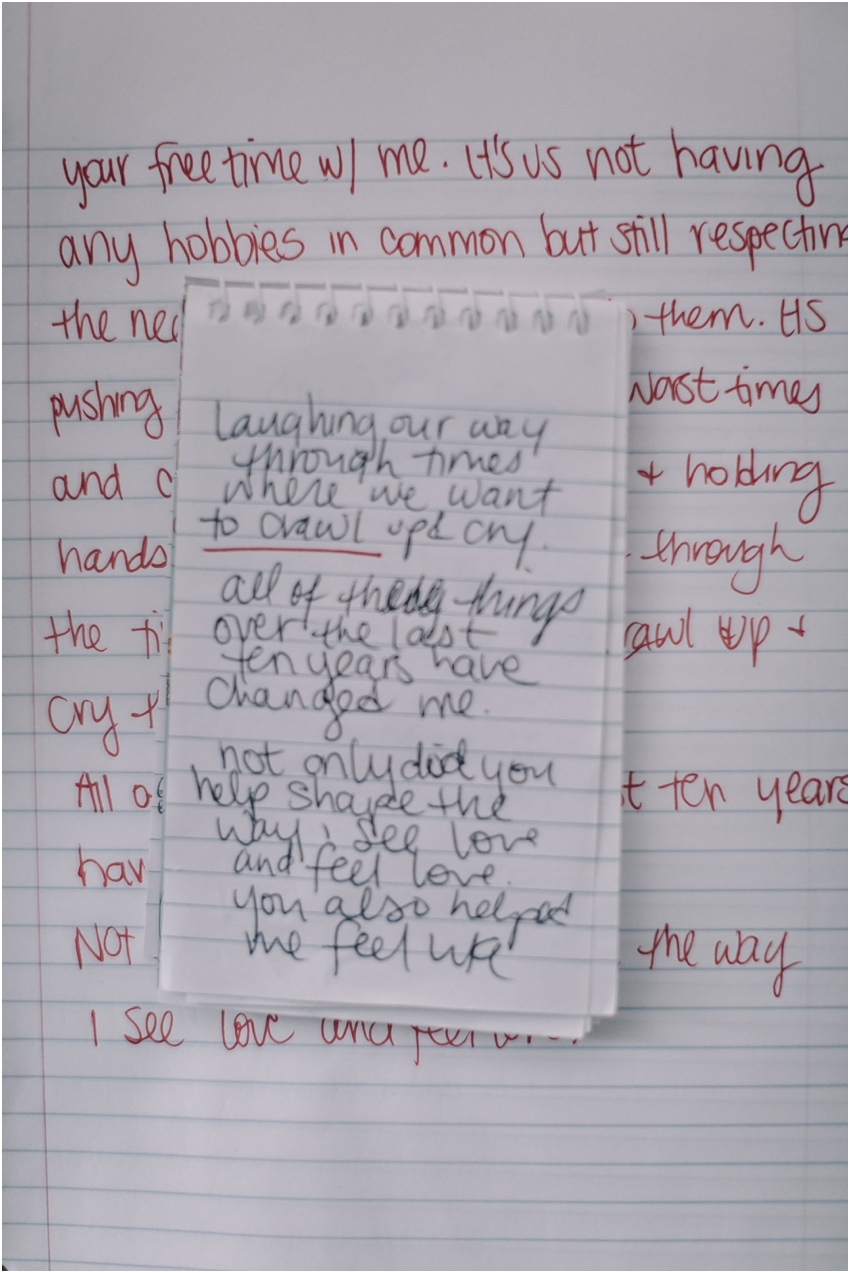 your free time w/ me. It's us not having
any hobbies in common but still respecting
the
them. It's
pushing
worst times
and
+ holding
hands
through
the
up +
cry
All
ten years
Not
the way
I see love and feel
laughing our way
through times
where we want
to crawl up & cry.
all of these things
over the last
ten years have
changed me.
not only did you
help shape the
way i see love
and feel love.
you also helped
me feel like